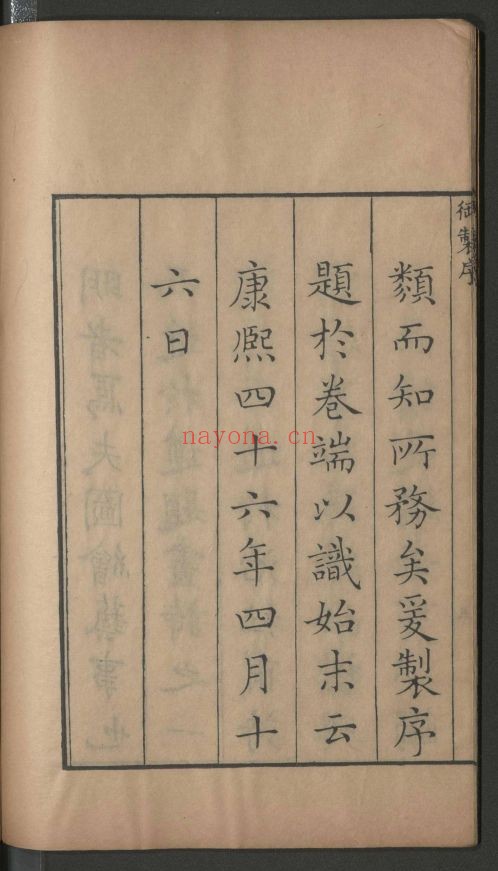 御製序
類而知所務矣爰製序
題於卷端以識始末云
康熙四十六年四月十
六日
nayona.cn